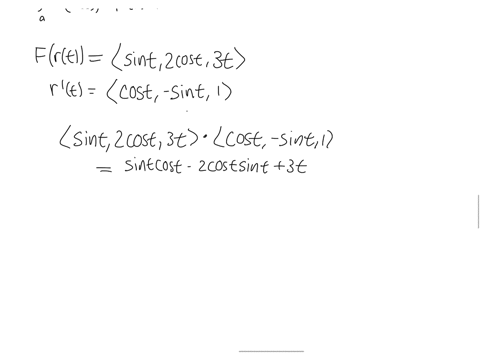 a
F(r(t)) = ⟨sint, 2cost, 3t⟩
r'(t) = ⟨cost, -sint, 1⟩
⟨sint, 2cost, 3t⟩ • ⟨cost, -sint, 1⟩
= sintcost - 2costsint + 3t